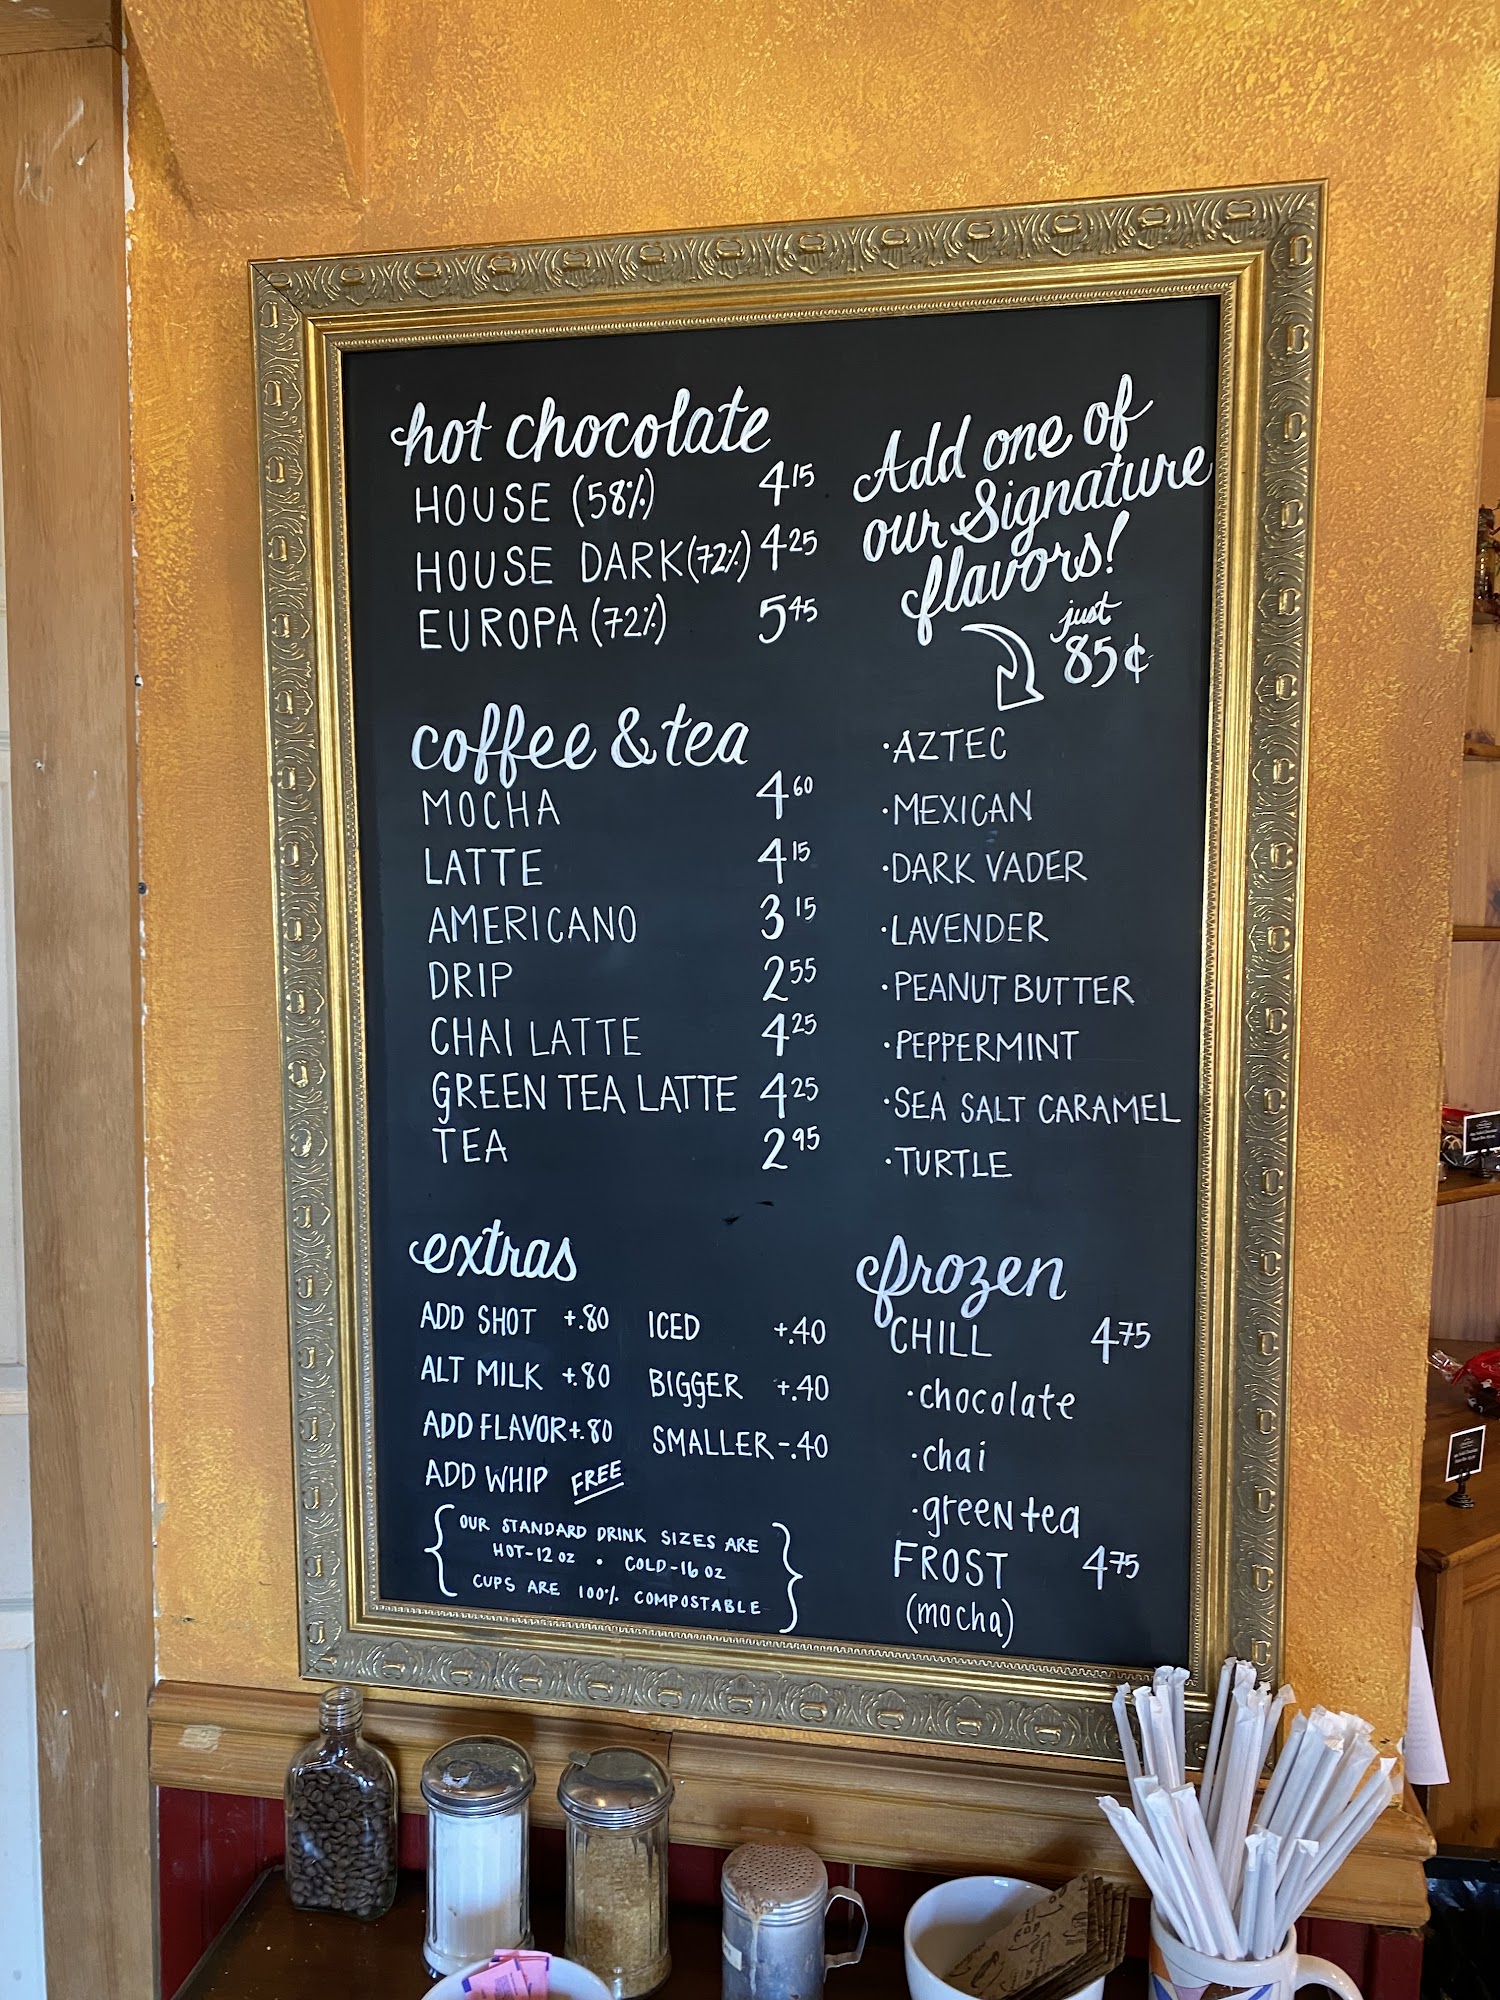 hot chocolate
HOUSE (58%) 4 15
HOUSE DARK (72%) 4 25
EUROPA (72%) 5 45
coffee & tea
MOCHA 4 60
LATTE 4 15
AMERICANO 3 15
DRIP 2 55
CHAI LATTE 4 25
GREEN TEA LATTE 4 25
TEA 2 95
extras
ADD SHOT +.80
ALT MILK +.80
ADD FLAVOR +.80
ADD WHIP FREE
ICED +.40
BIGGER +.40
SMALLER -.40
OUR STANDARD DRINK SIZES ARE
HOT-12 OZ • COLD-16 OZ
CUPS ARE 100% COMPOSTABLE
Add one of
our Signature
flavors!
just
85¢
·AZTEC
·MEXICAN
·DARK VADER
·LAVENDER
·PEANUT BUTTER
·PEPPERMINT
·SEA SALT CARAMEL
·TURTLE
frozen
CHILL 4 75
·chocolate
·chai
·green tea
FROST 4 75
(mocha)